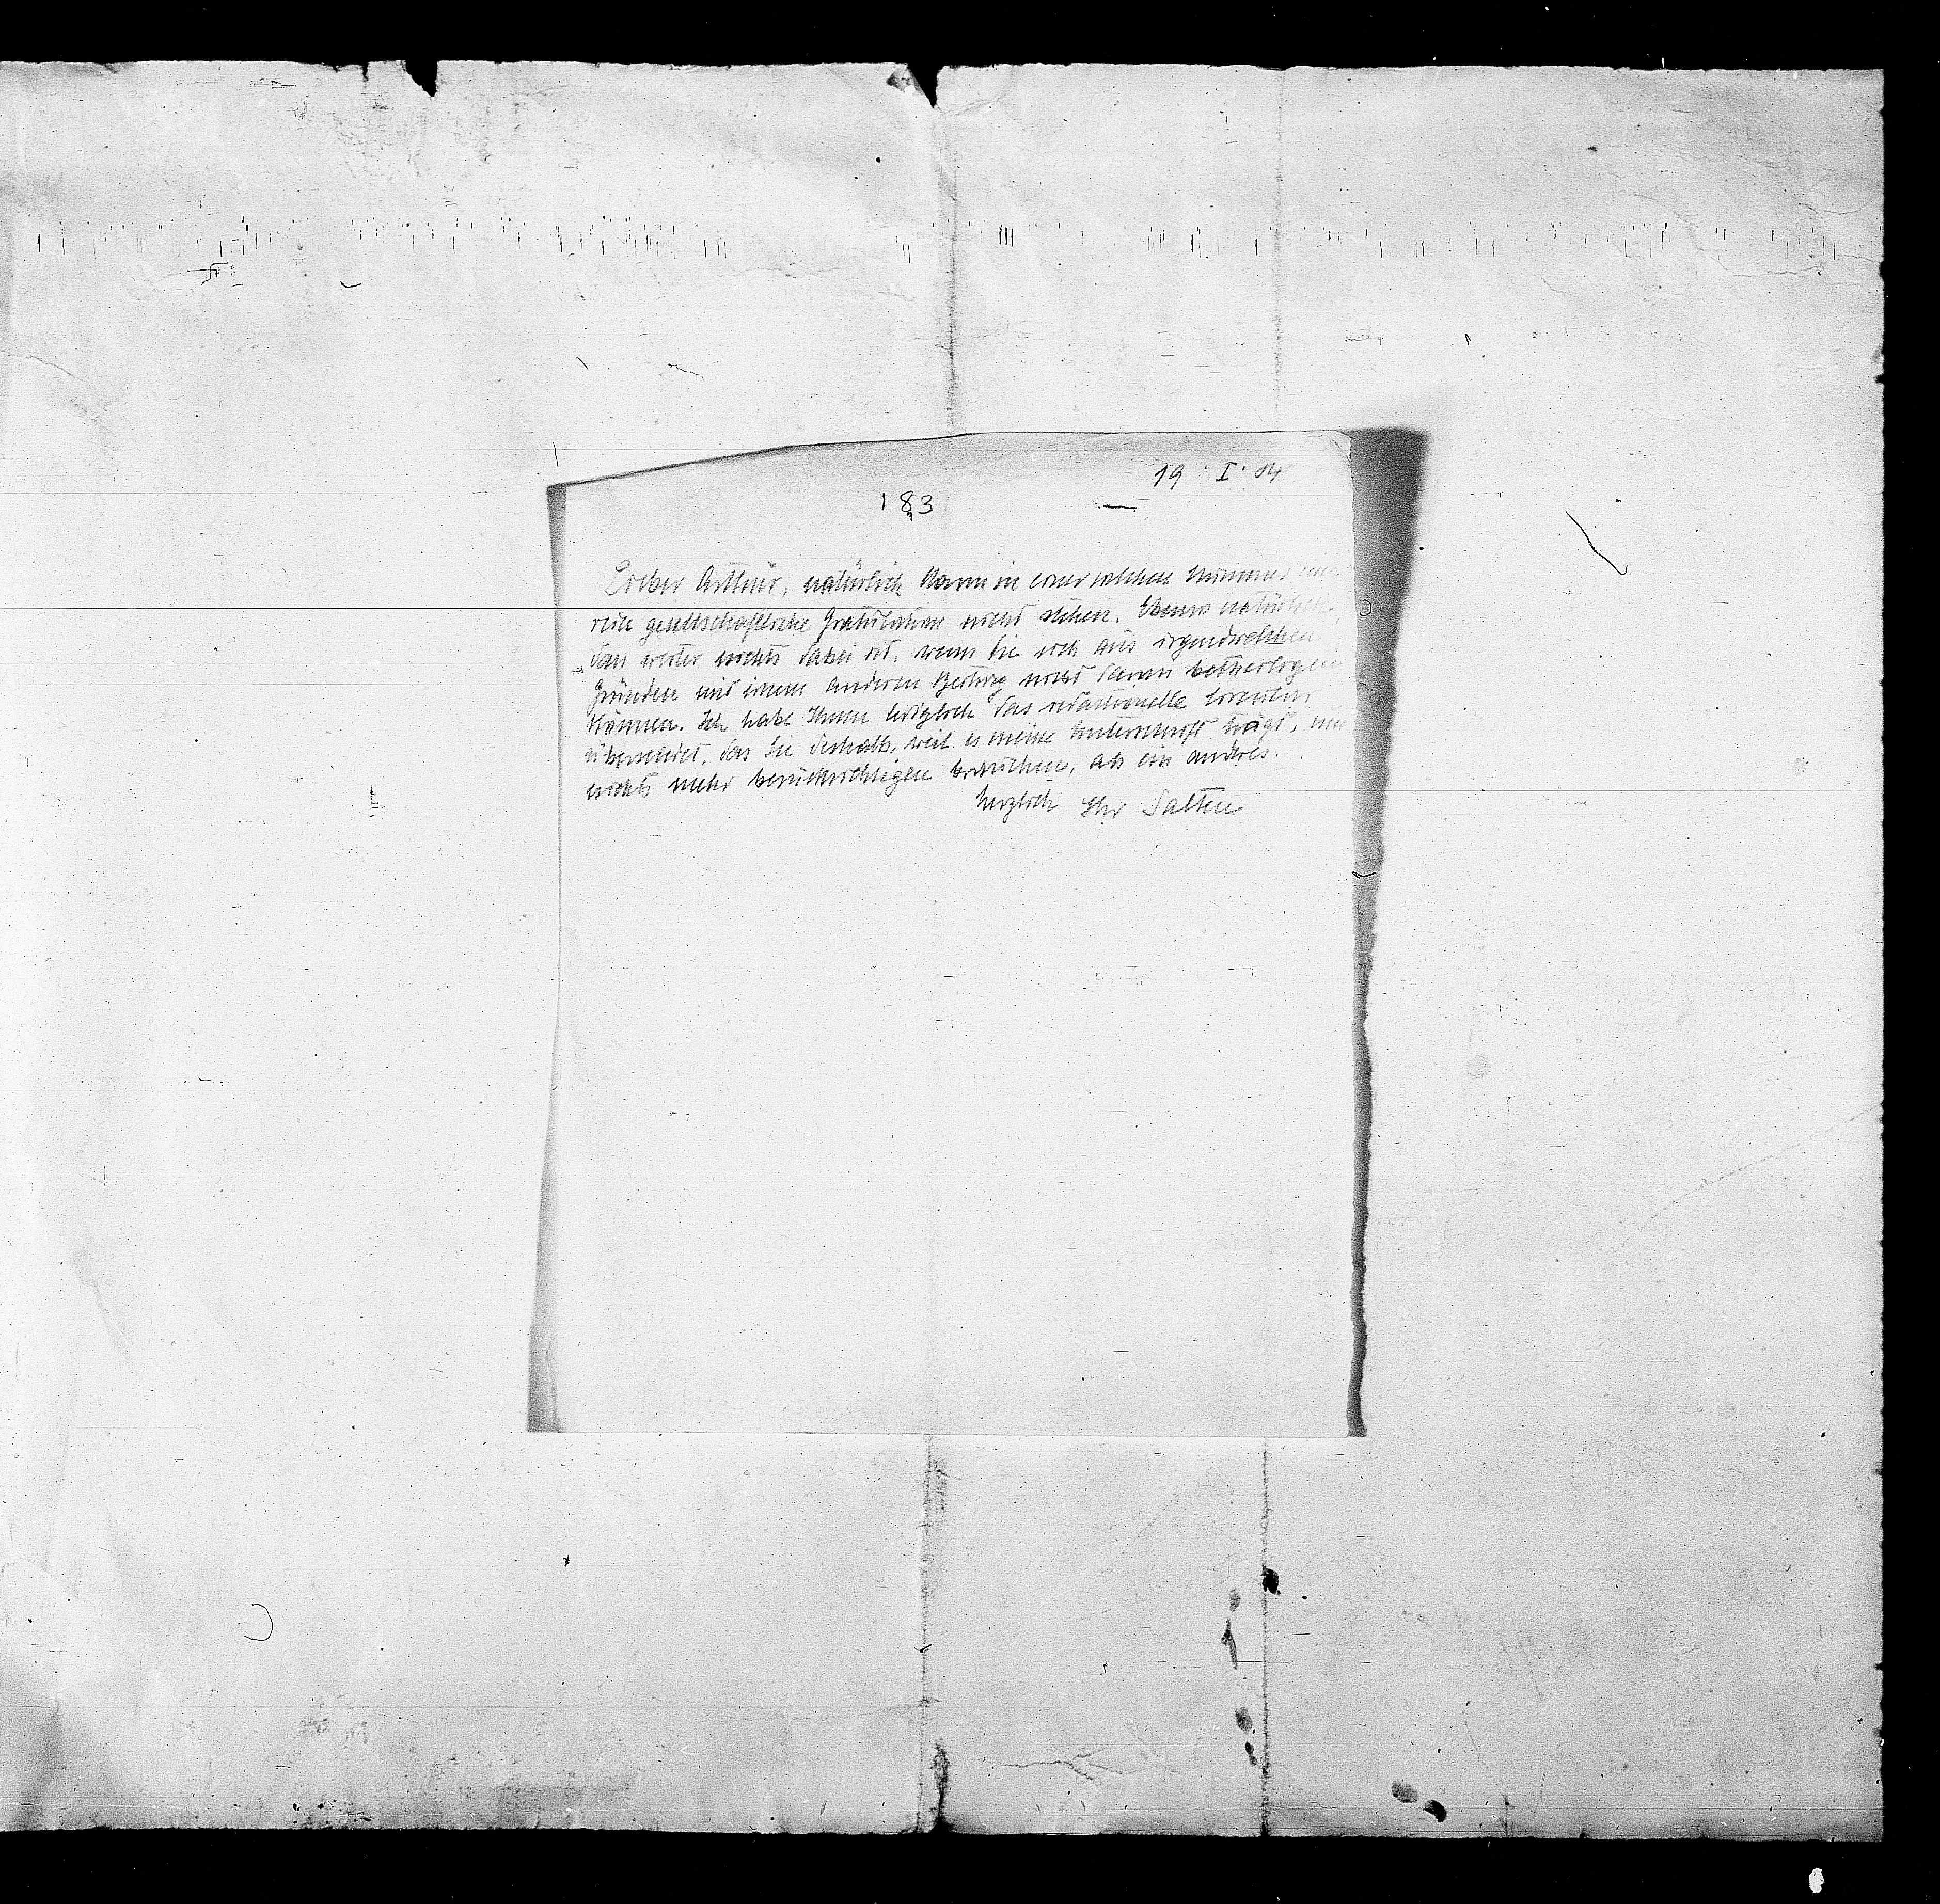 19. I. 04.
183
Lieber Arthur, natürlich kann in einer solchen Nummer eine
rein gesellschaftliche Gratulation nicht stehen. Ebenso natürlich,
dass weiter nichts dabei ist, wenn Sie sich aus irgendwelchen
Gründen mit einem anderen Beitrag nicht daran betheiligen
können. Ich habe Ihnen lediglich das redactionelle
übersendet, das Sie deshalb, weil es meine Unterschrift trägt, um
nichts mehr berücksichtigen brauchen, als ein anderes.
herzlich Ihr Salten